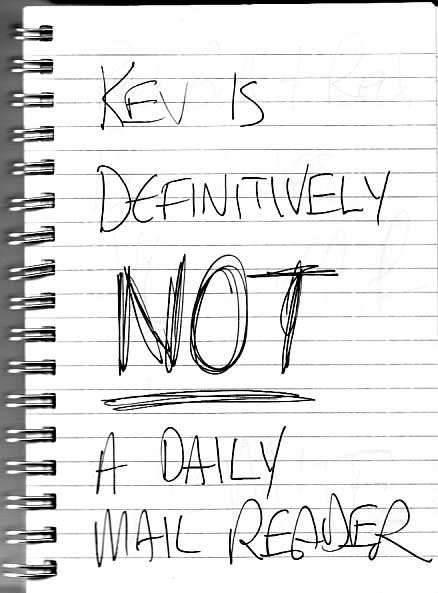 KEV IS
DEFINITIVELY
NOT
A DAILY
MAIL READER